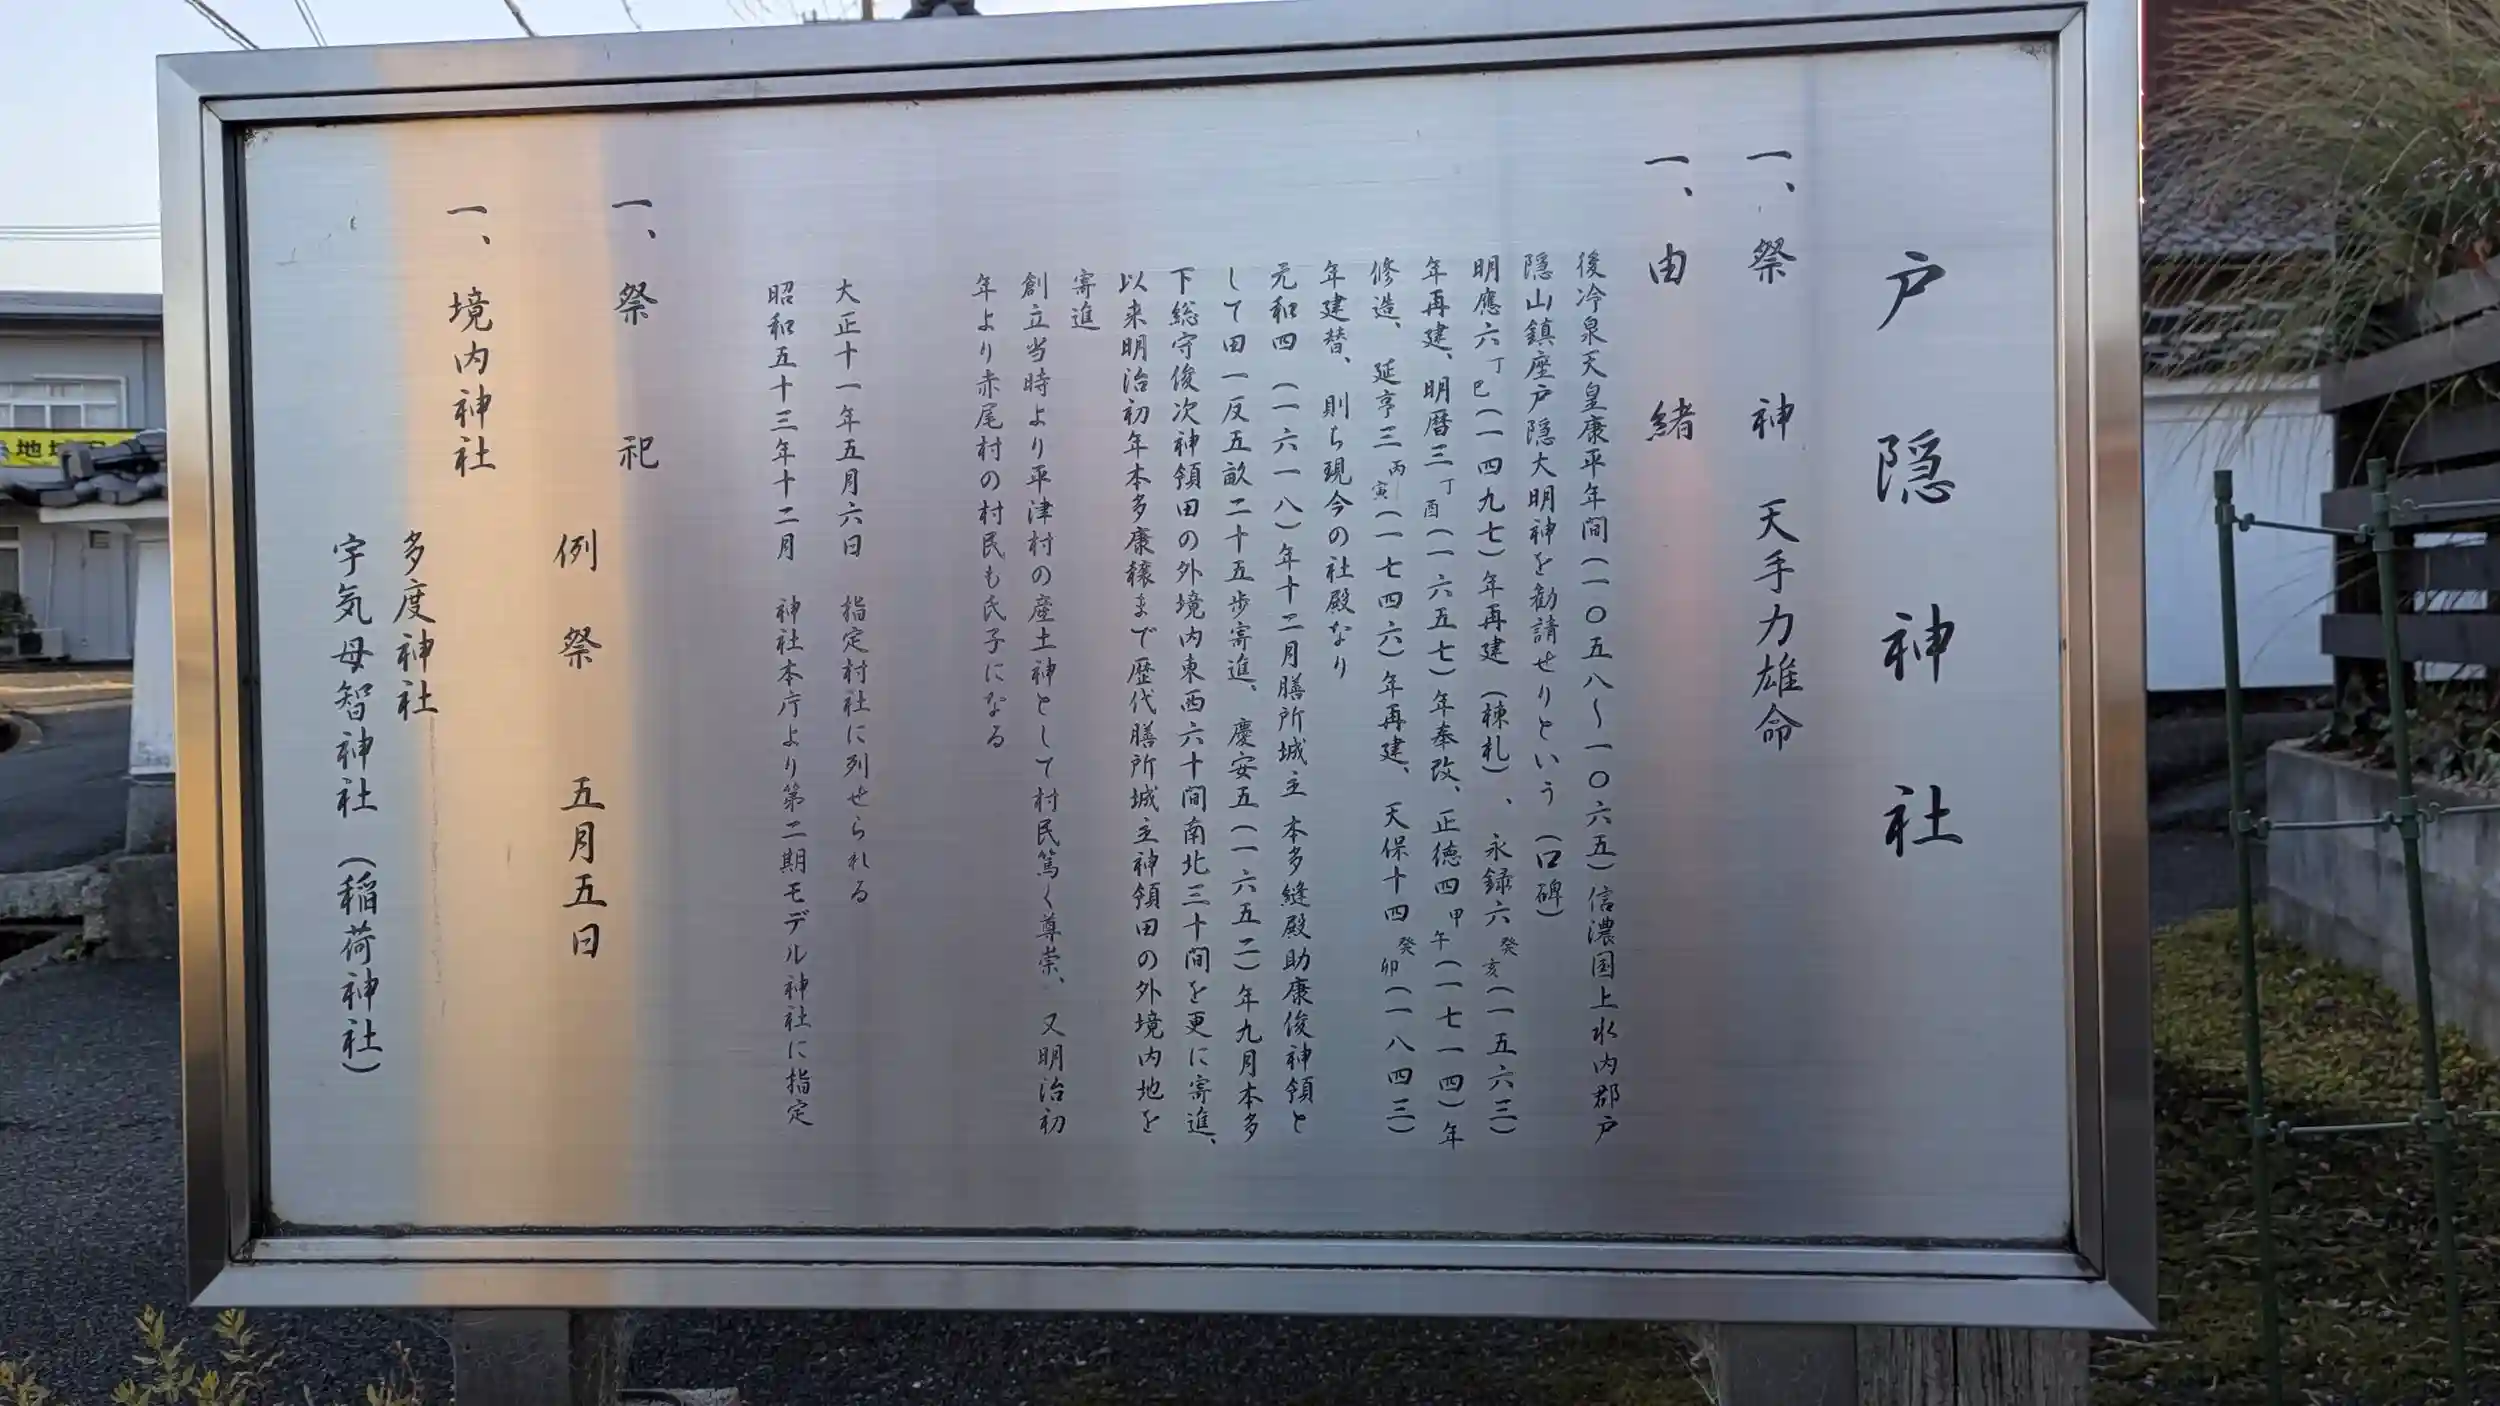 戸隠神社
一、祭神 天手力雄命
一、由緒
後冷泉天皇康平年間(一〇五八〜一〇六五)信濃国上水内郡戸
隠山鎮座戸隠大明神を勧請せりという(口碑)
明應六丁巳(一四九七)年再建(棟札)、永録六癸亥(一五六三)
年再建、明暦三丁酉(一六五七)年奉改、正徳四甲午(一七一四)年
修造、延享三丙寅(一七四六)年再建、天保十四癸卯(一八四三)
年建替、則ち現今の社殿なり
元和四(一六一八)年十二月膳所城主本多縫殿助康俊神領と
して田一反五畝二十五歩寄進、慶安五(一六五二)年九月本多
下総守俊次神領田の外境内東西六十間南北三十間を更に寄進、
以来明治初年本多康穣まで歴代膳所城主神領田の外境内地を
寄進
創立当時より平津村の産土神として村民篤く尊崇、又明治初
年より赤尾村の村民も氏子になる
大正十一年五月六日 指定村社に列せられる
昭和五十三年十二月 神社本庁より第二期モデル神社に指定
一、祭祀
例祭 五月五日
一、境内神社
多度神社
宇気母智神社(稲荷神社)